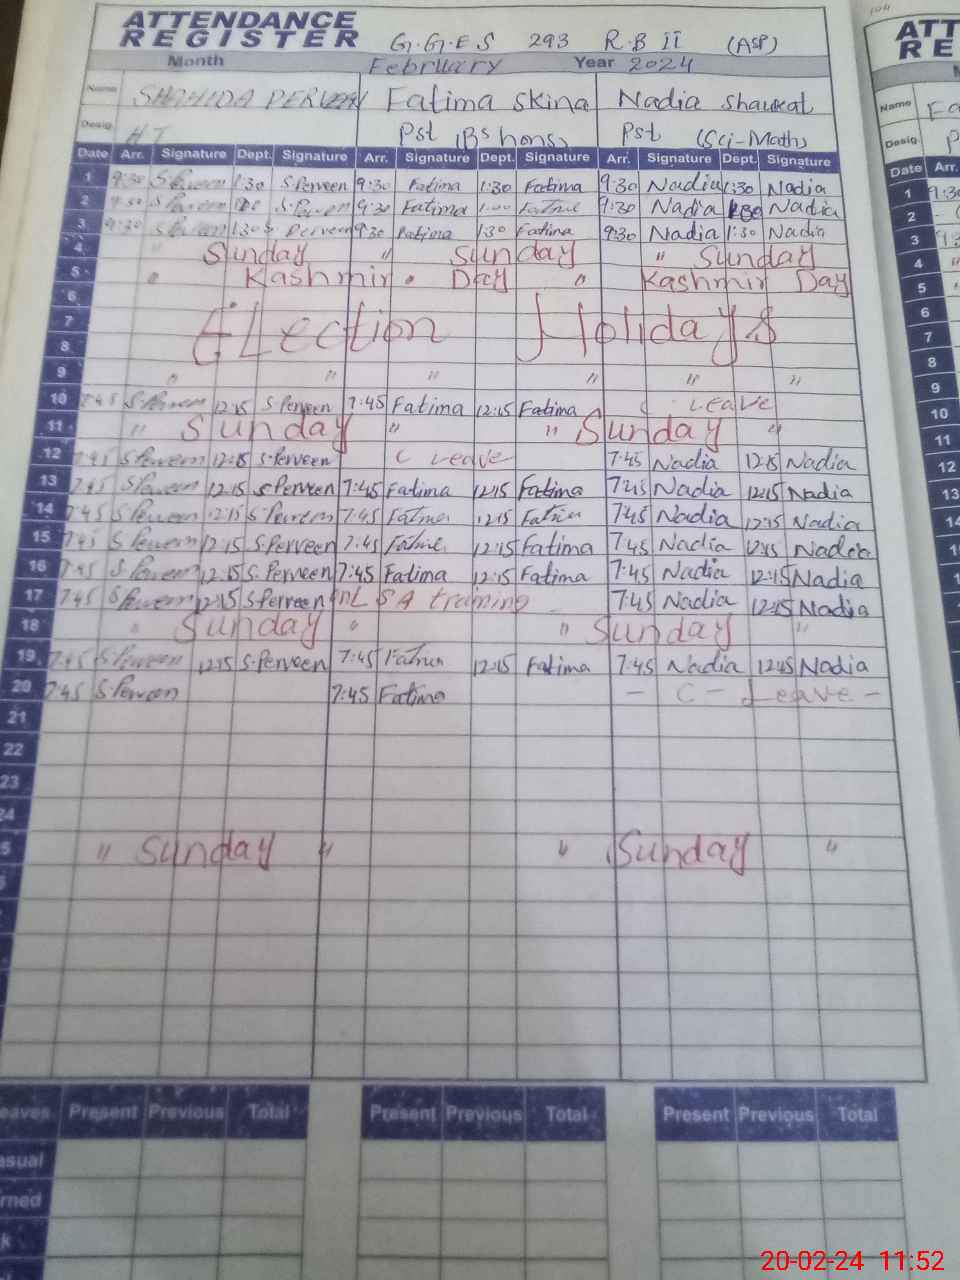 ATTENDANCE
REGISTER G.G.E.S 293 R.B II (ASP)
Month February Year 2024
Name SHAHIDA PERVEEN Fatima Skina Nadia Shaukat
Desig. HT Pst (Bs hons) Pst (Sci-Math)
Date Arr. Signature Dept. Signature Arr. Signature Dept. Signature Arr. Signature Dept. Signature
1 9:30 S.Perveen 1:30 S.Perveen 9:30 Fatima 1:30 Fatima 9:30 Nadia 1:30 Nadia
2 9:30 S.Perveen S.Perveen 9:30 Fatima 1:00 Fatima 9:30 Nadia Nadia
3 9:30 S.Perveen 1:30 S.Perveen 9:30 Fatima 1:30 Fatima 9:30 Nadia 1:30 Nadia
4 " Sunday " Sunday " Sunday
5 " Kashmir " Day " Kashmir Day
6
7 ELection Holidays
8
9 " " " " " "
10 7:45 S.Perveen 12:15 S.Perveen 7:45 Fatima 12:15 Fatima C Leave
11 " Sunday " " Sunday "
12 7:45 S.Perveen 12:15 S.Perveen C Leave 7:45 Nadia 12:15 Nadia
13 7:45 S.Perveen 12:15 S.Perveen 7:45 Fatima 12:15 Fatima 7:45 Nadia 12:15 Nadia
14 7:45 S.Perveen 12:15 S.Perveen 7:45 Fatima 12:15 Fatima 7:45 Nadia 12:15 Nadia
15 7:45 S.Perveen 12:15 S.Perveen 7:45 Fatima 12:15 Fatima 7:45 Nadia 12:15 Nadia
16 7:45 S.Perveen 12:15 S.Perveen 7:45 Fatima 12:15 Fatima 7:45 Nadia 12:15 Nadia
17 7:45 S.Perveen 12:15 S.Perveen SA training 7:45 Nadia 12:15 Nadia
18 " Sunday " " Sunday "
19 7:45 S.Perveen 12:15 S.Perveen 7:45 Fatima 12:15 Fatima 7:45 Nadia 12:45 Nadia
20 7:45 S.Perveen 7:45 Fatima - C - Leave -
21
22
23
24
5 " Sunday " " Sunday "
eaves Present Previous Total Present Previous Total Present Previous Total
asual
rned
k
ATT
RE
Name
Desig.
Date Arr.
1 9:30
2
3
4 "
5 "
6
7
8
9
10
11
12
13
14
20-02-24 11:52